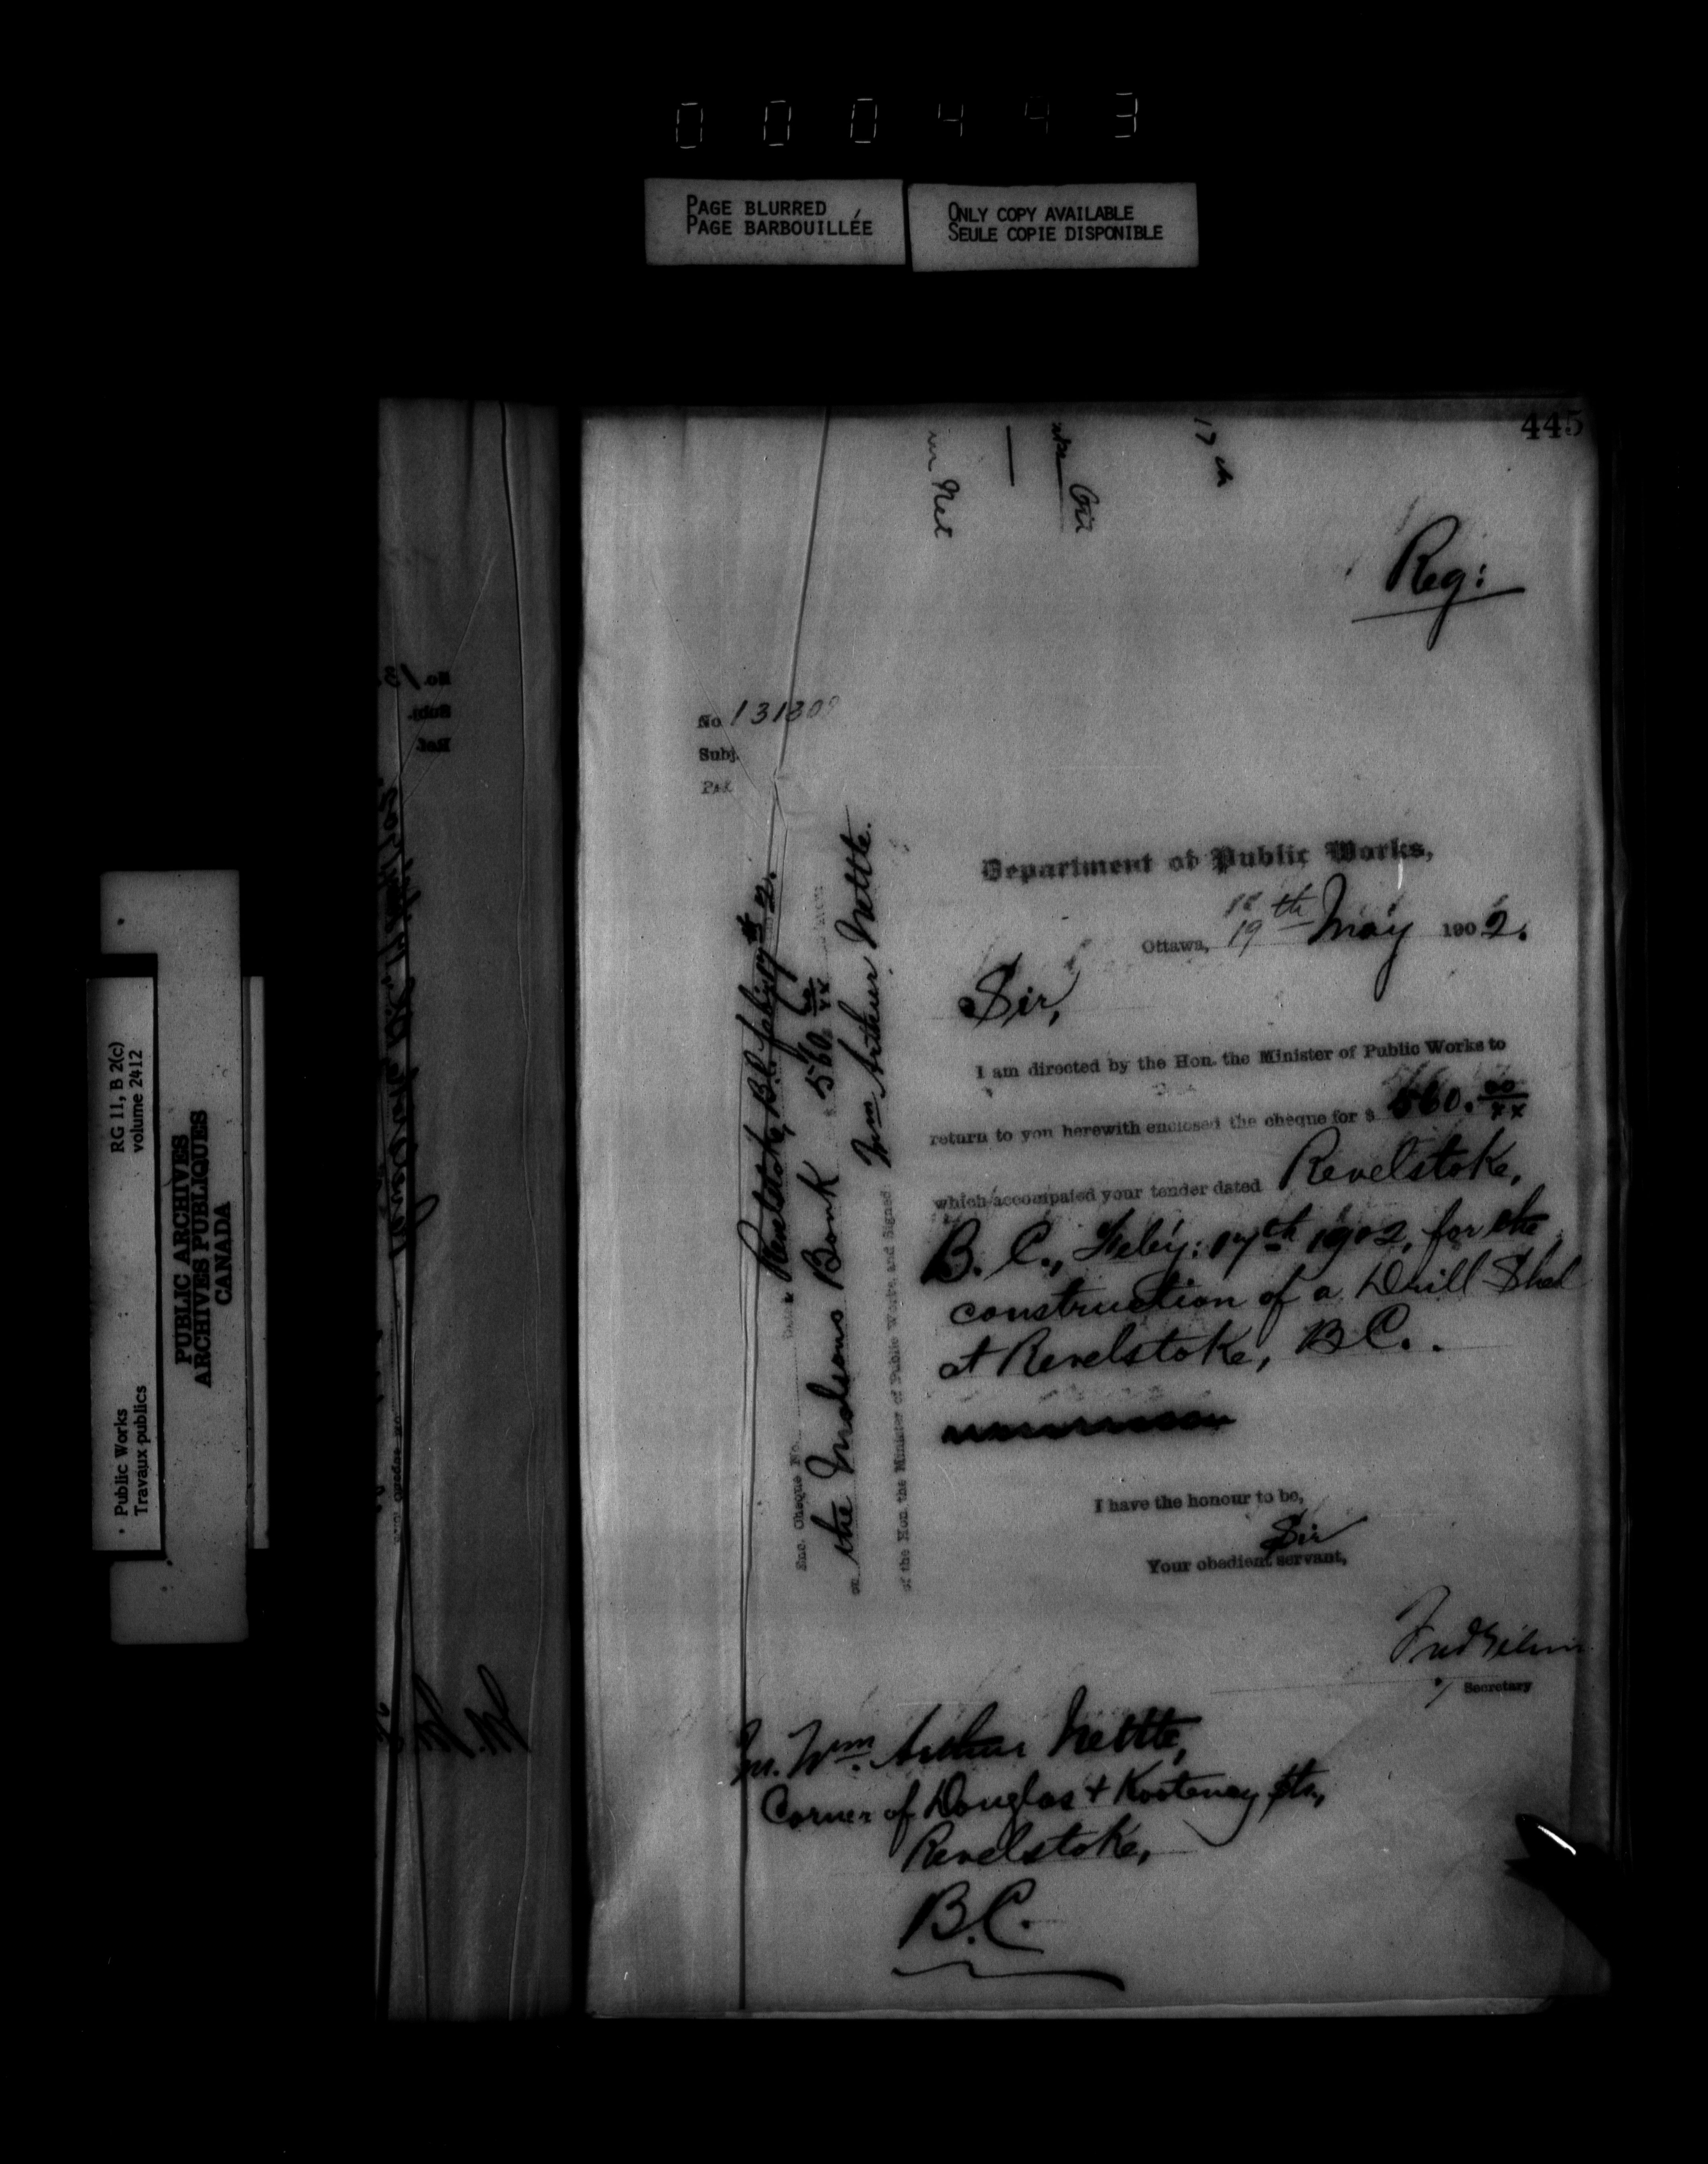 000443
PAGE BLURRED
PAGE BARBOUILLÉE
ONLY COPY AVAILABLE
SEULE COPIE DISPONIBLE
445
17th
Net
Reg:
No 131309
Subj.
Department of Public Works,
Ottawa, 19th May 1902.
Sir,
I am directed by the Hon. the Minister of Public Works to
return to you herewith enclosed the cheque for $ 560.00/xx
which accompaied your tender dated Revelstoke,
B. C., Feby: 17th 1902, for the
construction of a Drill Shed
at Revelstoke, B C.
I have the honour to be,
Sir
Your obedient servant,
Secretary
Mr. Wm. Arthur Nettle,
Corner of Douglas & Kootenay Sts,
Revelstoke,
B.C.
Enc. Cheque No. Dated Revelstoke, B.C. Feby 17th 02.
on the Molsons Bank $ 560.00/xx
of the Hon. the Minister of Public Works, and Signed Wm Arthur Nettle.
No.
Subj.
Ref.
RG 11, B 2(c)
volume 2412
Public Works
Travaux publics
PUBLIC ARCHIVES
ARCHIVES PUBLIQUES
CANADA